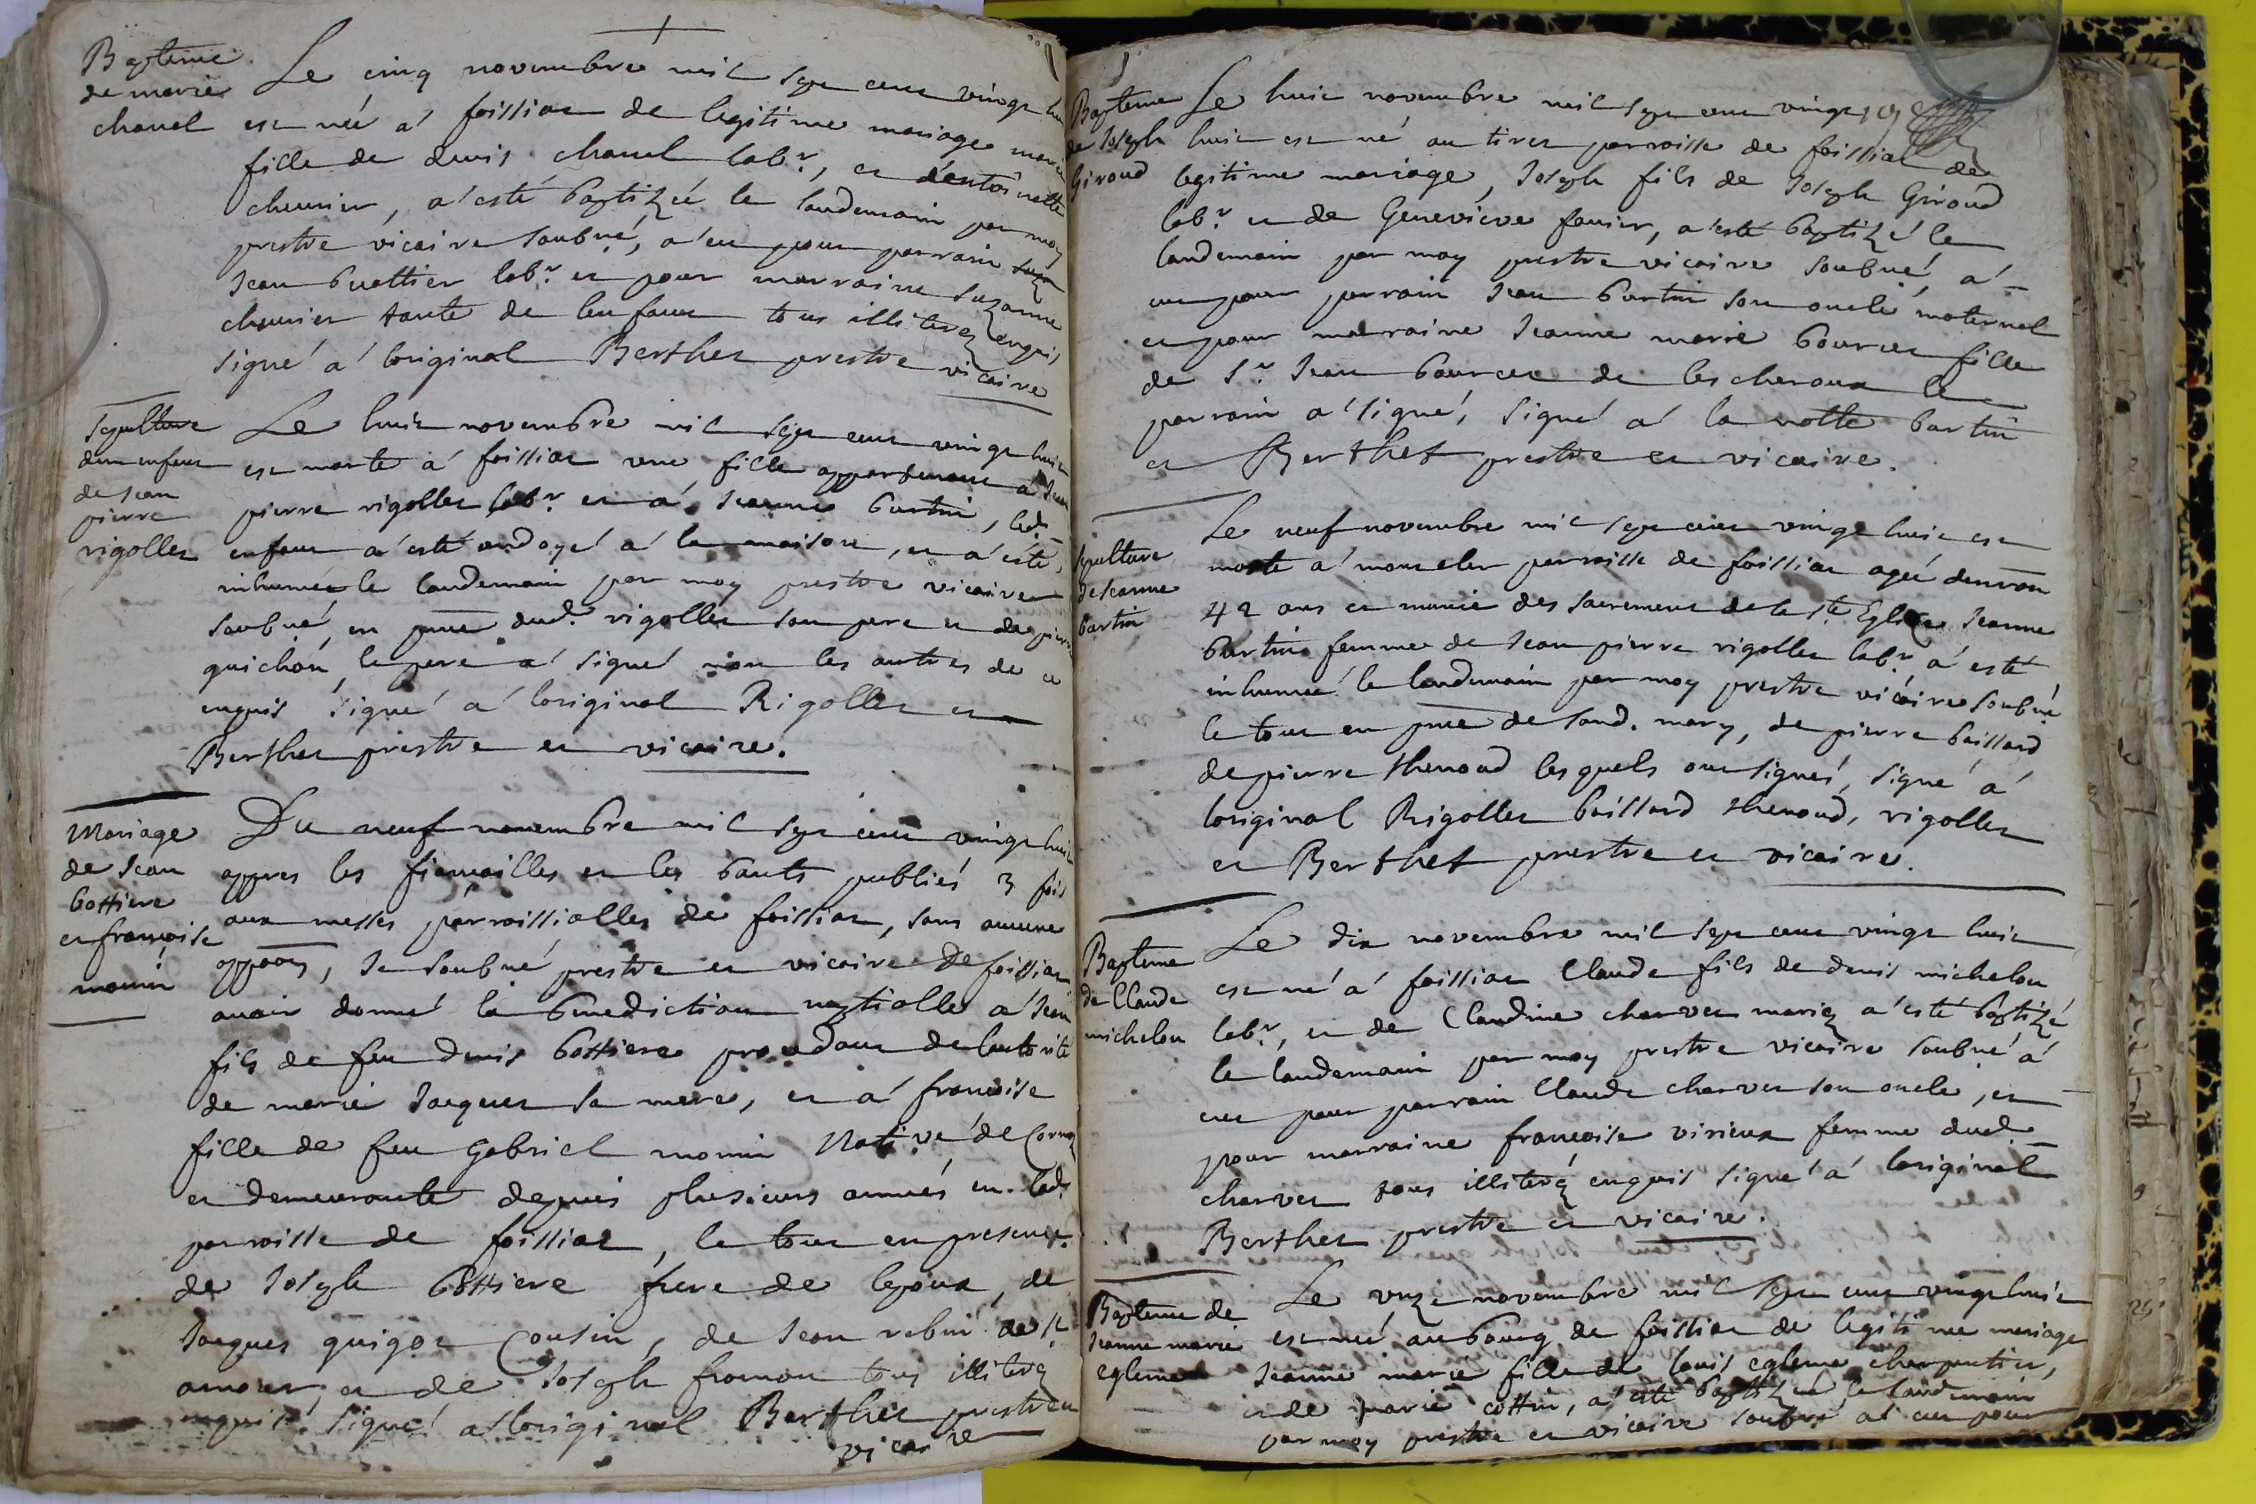 Bapteme
de marie
chanel
Le cinq novembre mil sept cent vingt hui
est née a foissiat de legitime mariage marie
fille de denis chanel labr., et dantoinette
cheurier, a esté baptizeé le landemain par moy
prestre vicaire soubné, a eu pour parrain
Jean buattier labr. et pour marraine suzanne
cheurier tante de lenfant tous illiterez enquis
signé a loriginal Berthet prestre vicaire
sepulture
dun enfant
de Jean
pierre
rigollet
Le huit novembre mil sept cent vingt huit
est morte a foissiat une fille appartenant a Jean
pierre rigollet labr. et a Jeanne burtin, led.
enfant a esté ondoyé a la maison, et a esté
inhumée le landemain par moy prestre vicaire
soubné, en pnce dud. rigollet son pere et de pierre
guichon, le pere a signé non les autres de ce
enquis signé a loriginal Rigollet et
Berthet prestre et vicaire.
Mariage
de Jean
bottiere
et françoise
monin
Du neuf novembre mil sept cent vingt huit
appres les fiançailles et les bants publiés 3 fois
aux messes parroissialles de foissiat, sans aucune
oppoon, Je soubné prestre et vicaire De foissiat
avoir donné la benediction nuptialle a Jean
fils de feu denis bottiere procedant de lautorité
de marie Jacquet sa mere, et a françoise
fille de feu gabriel monin Native de Cormoz
et demeurante depuis plusieurs années en lad.
parroisse de foissiat, le tout en presence
de Joseph bottiere frere de lepoux, de
Jacques guigot Cousin, de Jean rebin de st
amour, et de Joseph fromon tous illiterez
enquis. signé a loriginal Berthet prestre et
vicaire
Bapteme
de Joseph
Giroud
Le huit novembre mil sept cent vingt
huit est né au tiret parroisse de foissiat de
legitime mariage, Joseph fils de Joseph Giroud
labr. et de Genevieve favier, a esté baptizé le
landemain par moy prestre vicaire soubné, a
eu pour parrain Jean burtin son oncle maternel
et pour marraine Jeanne marie bourcet fille
de Sr. Jean bourcet de lescheroux le
parrain a signé, signé a la notte burtin
et Berthet prestre et vicaire.
sepulture
de Jeanne
burtin
Le neuf novembre mil sept cent vingt huit est
morte a montclet parroisse de foissiat ageé denviron
42 ans et munie des sacrements de la ste Eglise Jeanne
burtin femme de Jean pierre rigollet labr. a esté
inhumeé le landemain par moy prestre vicaire soubné
le tout en pnce de sond. mary, de pierre baissard
de pierre thenoud lesquels ont signés, signé a
loriginal Rigollet baissard thenoud, rigollet
et Berthet prestre et vicaire.
Bapteme
de Claude
michelon
Le dix novembre mil sept cent vingt huit
est né a foissiat Claude fils de denis michelon
labr., et de Claudine charvet mariez a esté baptizé
le landemain par moy prestre vicaire soubné a
eu pour parrain Claude charvet son oncle, et
pour marraine françoise virieux femme dud.
charvet tous illiterez enquis signé a loriginal
Berthet prestre et vicaire.
Bapteme de
Jeanne marie
egleme
Le unze novembre mil sept cent vingt huit
est neé au bourg de foissiat de legitime mariage
Jeanne marie fille de louis egleme charpentier,
et de marie cottin, a esté baptizeé le landemain
par moy prestre et vicaire soubné a eu pour